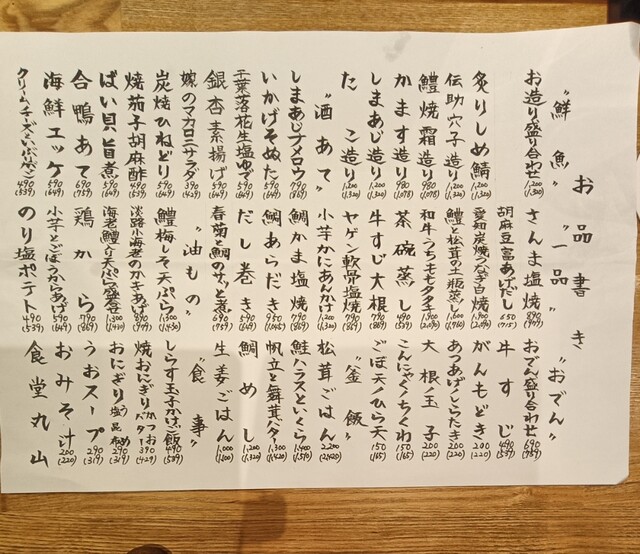 お品書き
〝鮮魚〟
お造り盛り合わせ 1,200 (1,320)
炙りしめ鯖 1,200 (1,320)
伝助穴子造り 1,200 (1,320)
鱧焼霜造り 980 (1,078)
かます造り 980 (1,078)
しまあじ造り 1,200 (1,320)
たこ造り 1,200 (1,320)
〝酒あて〟
しまあじナメロウ 790 (869)
いかげそぬた 590 (649)
千葉落花生塩ゆで 590 (649)
銀杏素揚げ 590 (649)
娘のマカロニサラダ 390 (429)
炭焼ひねどり 590 (649)
焼茄子胡麻酢 490 (539)
ばい貝旨煮 590 (649)
合鴨あて 690 (759)
海鮮ユッケ 590 (649)
クリームチーズといぶりがっこ 490 (539)
〝一品〟
さんま塩焼 890 (979)
胡麻豆富あげだし 650 (715)
愛知炭焼うなぎ白焼 1,900 (2,090)
鱧と松茸の土瓶蒸し 1,600 (1,760)
和牛うちももタタキ 1,900 (2,090)
茶碗蒸し 490 (539)
牛すじ大根 790 (869)
ヤゲン軟骨塩焼 790 (869)
小芋かにあんかけ 1,200 (1,320)
鯛かま塩焼 790 (869)
鯛あらだき 950 (1,045)
だし巻き 590 (649)
春菊と鯛のサッと煮 690 (759)
〝油もの〟
鱧梅しそ天ぷら 1,300 (1,430)
淡路小海老のかきあげ 890 (979)
海老鱧入り天ぷら盛合 1,300 (1,430)
鶏から 790 (869)
小芋とごぼうからあげ 590 (649)
のり塩ポテト 490 (539)
〝おでん〟
おでん盛り合わせ 690 (759)
牛すじ 490 (539)
がんもどき 200 (220)
あつあげ/しらたき 200 (220)
大根/玉子 200 (220)
こんにゃく/ちくわ 150 (165)
ごぼ天/ひら天 150 (165)
〝釜飯〟
松茸ごはん 2,200 (2,420)
鮭ハラスといくら 1,400 (1,540)
帆立と舞茸バター 1,300 (1,430)
鯛めし 1,200 (1,320)
生姜ごはん 1,000 (1,100)
〝食事〟
しらす玉子かけご飯 490 (539)
焼おにぎり かつおバター 390 (429)
おにぎり 290 (319)
うおスープ 290 (319)
おみそ汁 200 (220)
食堂丸山